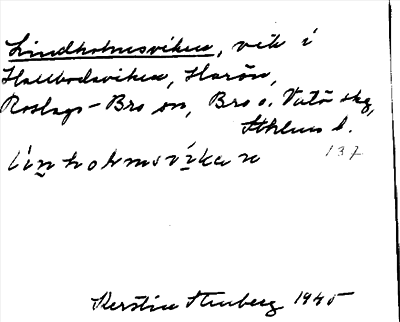 Lindholmsviken, vik i
Hallbodaviken, Harön,
Roslags-Bro sn, Bro o. Vätö skg,
Sthlms l.
linholmsvikan 137
Kerstin Stenberg 1945